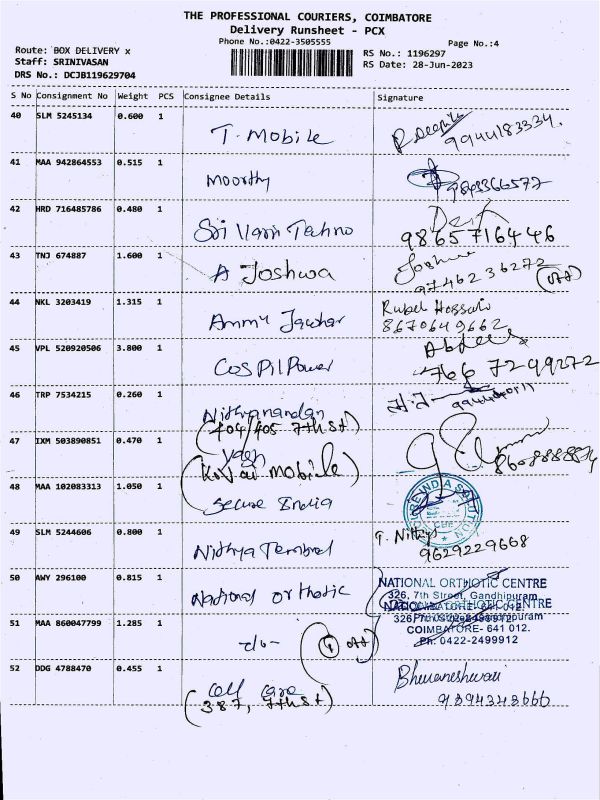 THE PROFESSIONAL COURIERS, COIMBATORE
Delivery Runsheet - PCX
Phone No.:0422-3505555
Page No.:4
Route: BOX DELIVERY x
RS No.: 1196297
Staff: SRINIVASAN
RS Date: 28-Jun-2023
DRS No.: DCJB119629704
S No Consignment No Weight PCS Consignee Details Signature
40 SLM 5245134 0.600 1 T. Mobile 9944183334.
41 MAA 942864553 0.515 1 Moorthy
42 HRD 716485786 0.480 1 Sri Vari Techno 9865716446
43 TNJ 674887 1.600 1 A Joshwa Joshwa
9746236272
44 NKL 3203419 1.315 1 Ammu Jawhar Rubel Hossain
8670649662
45 VPL 520920506 3.800 1 Cos Pil Power 766 7299272
46 TRP 7534215 0.260 1 Nithyanandan
(404/405 7th st)
47 IXM 503890851 0.470 1
(Kovai mobile)
48 MAA 102083313 1.050 1 Secure India
49 SLM 5244606 0.800 1 Nithya G. Nithya
9629229668
50 AWY 296100 0.815 1 National orthotic NATIONAL ORTHOTIC CENTRE
326, 7th Street, Gandhipuram
51 MAA 860047799 1.285 1 -do-
COIMBATORE- 641 012.
Ph: 0422-2499912
52 DDG 4788470 0.455 1 Cell Care Bhuvaneshwari
(387, 7th st) 9394343666